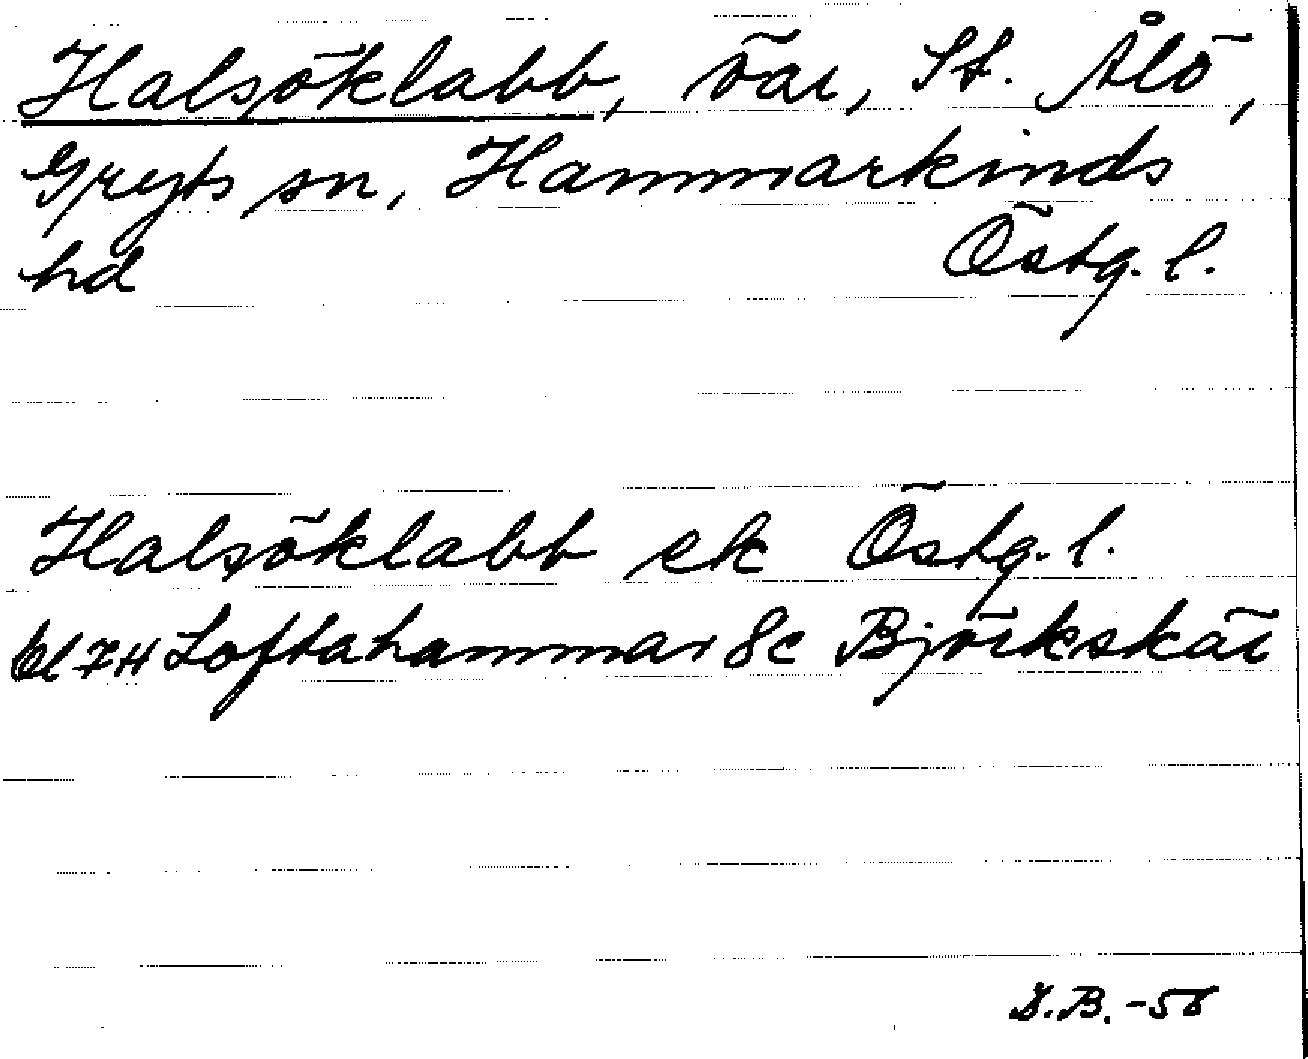 Halsöklabb, öar, St. Ålö,
Gryts sn, Hammarkinds
hd Östg. l.
Halsöklabb ek Östg. l.
bl 7H Loftahammar 8c Björkskär